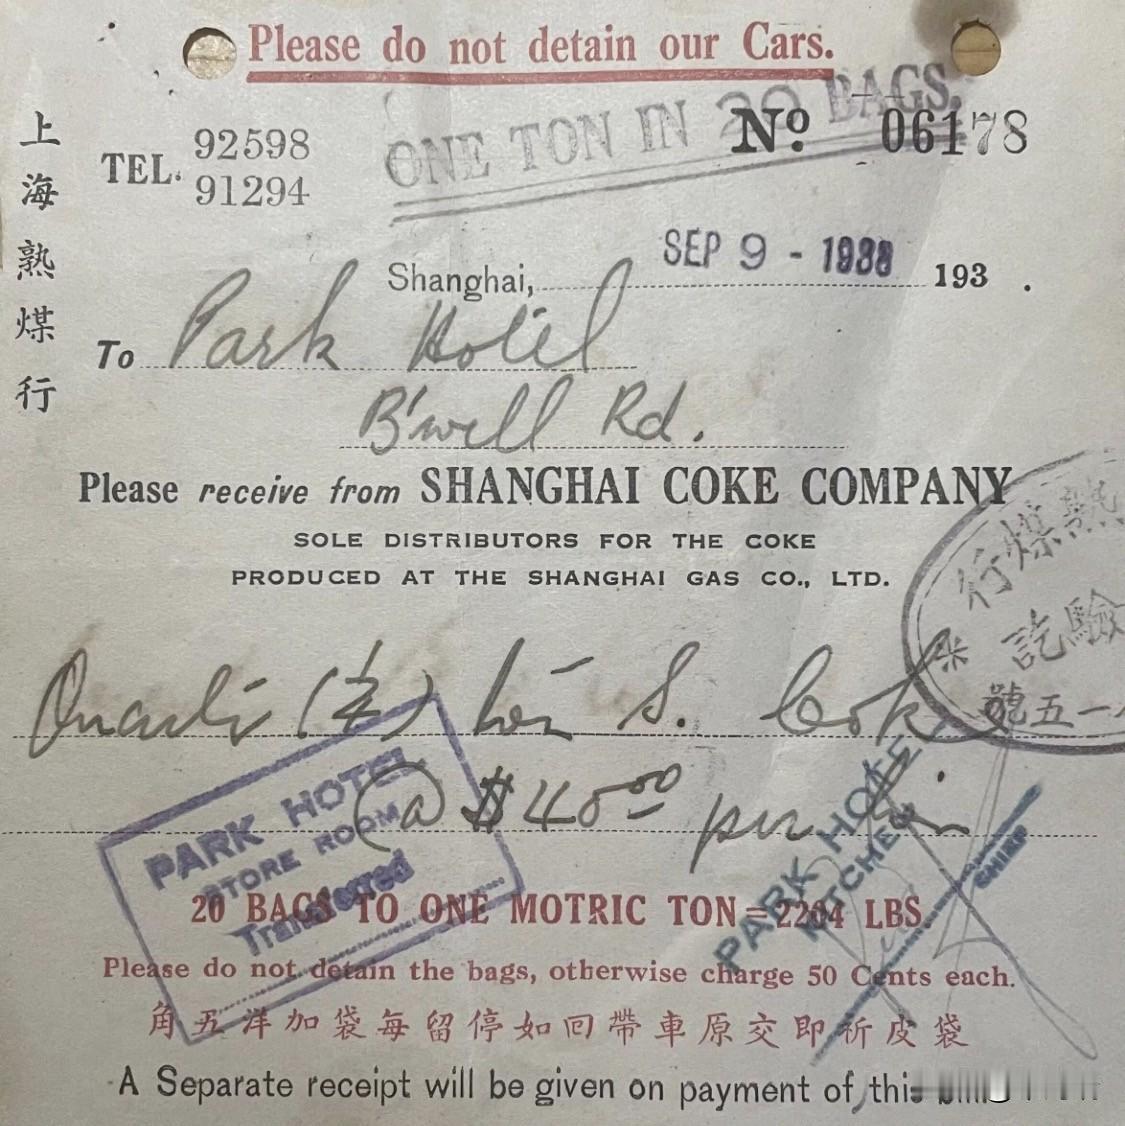 Please do not detain our Cars.
上海熟煤行
TEL. 92598
91294
ONE TON IN 20 BAGS.
No. 06178
Shanghai, SEP 9 - 1938 193 .
To Park Hotel
B'well Rd.
Please receive from SHANGHAI COKE COMPANY
SOLE DISTRIBUTORS FOR THE COKE
PRODUCED AT THE SHANGHAI GAS CO., LTD.
熟煤行
驗訖
號五一
ton S. Coke
@ $48.00 per ton
PARK HOTEL
STORE ROOM
Transferred
PARK HOTEL
KITCHEN
CHIEF
20 BAGS TO ONE MOTRIC TON=2204 LBS.
Please do not detain the bags, otherwise charge 50 Cents each.
角五洋加袋每留停如回帶車原交即祈皮袋
A Separate receipt will be given on payment of this